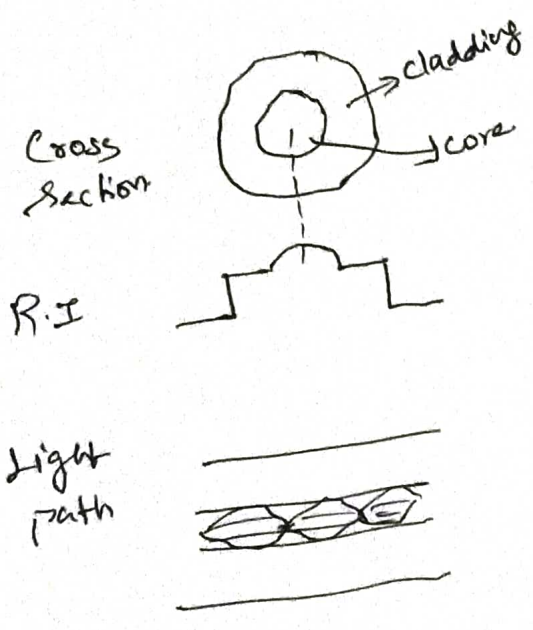 cladding
core
Cross
Section
R.I
Light
path